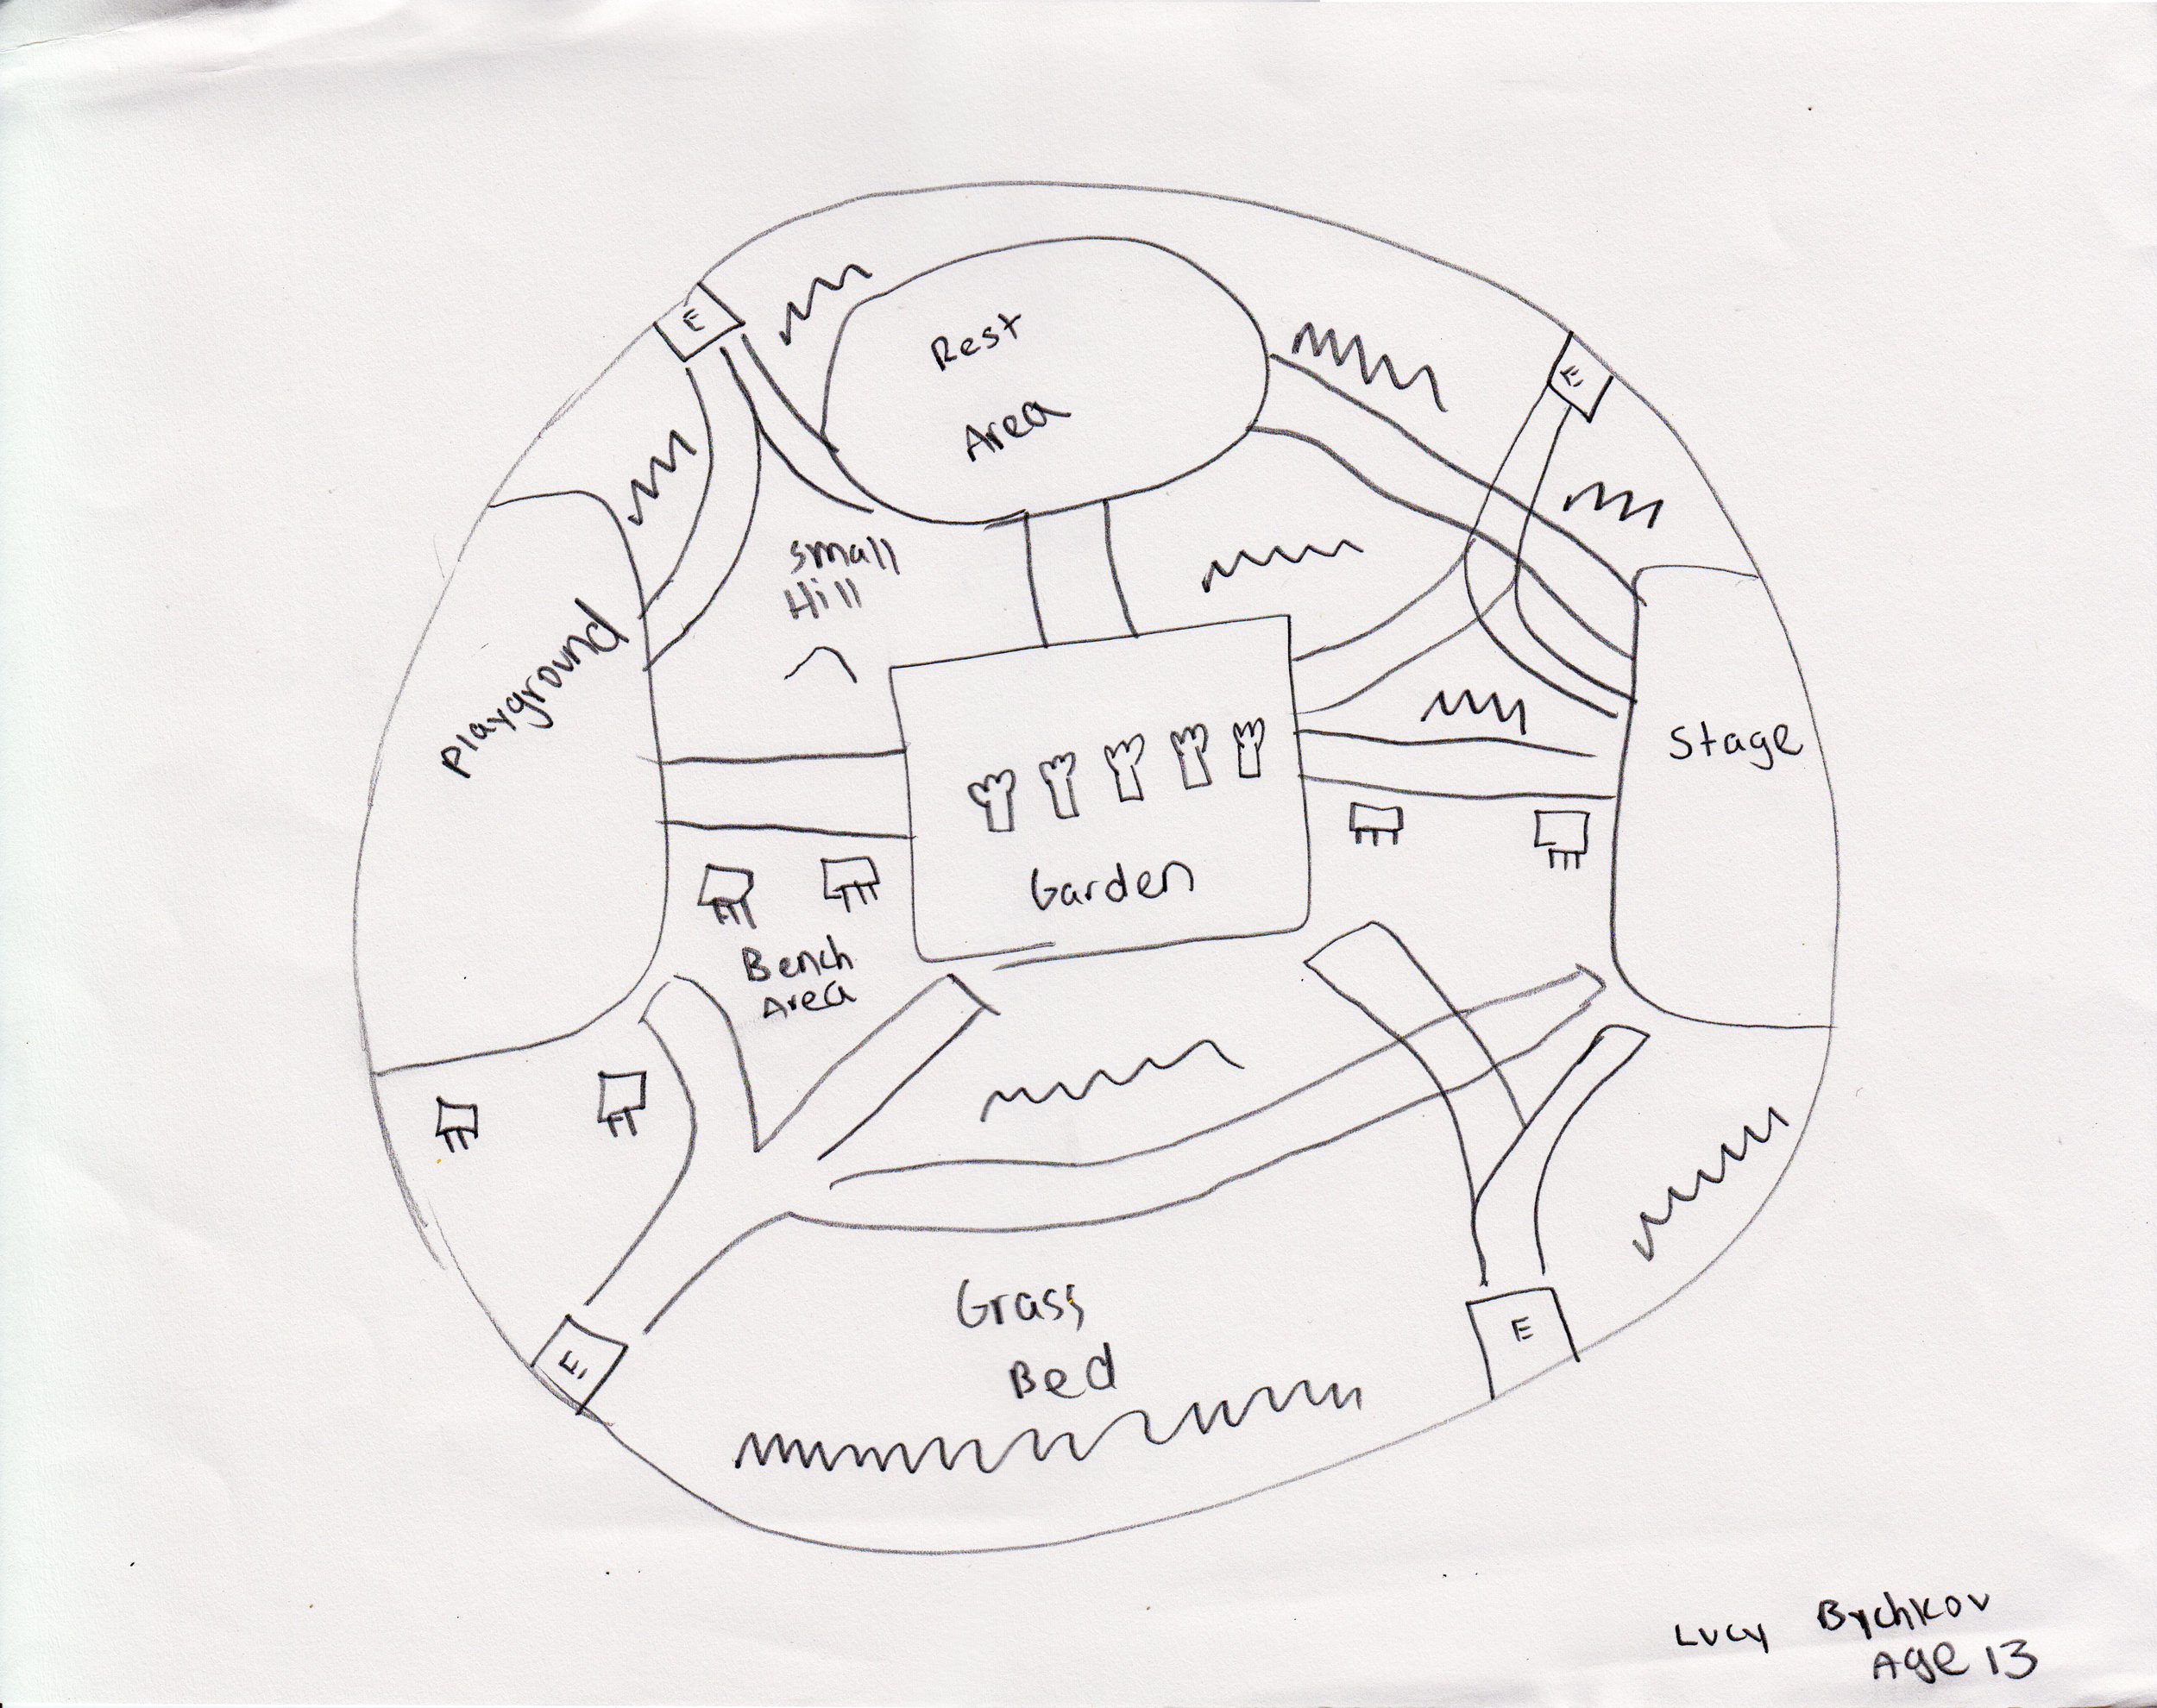 E
Rest
Area
E
Small
Hill
Playground
Stage
Garden
Bench
Area
Grass
Bed
E
E
Lucy Bychkov
Age 13